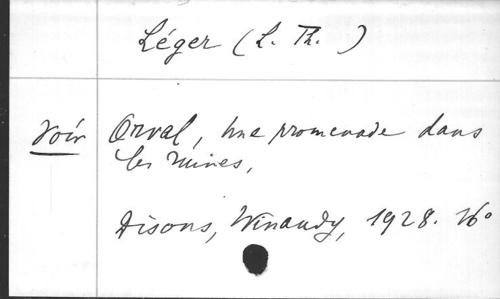 Léger (L. Th. )
Voir Orval, Une promenade dans
les ruines,
Disons, Winandy, 1928. 16°